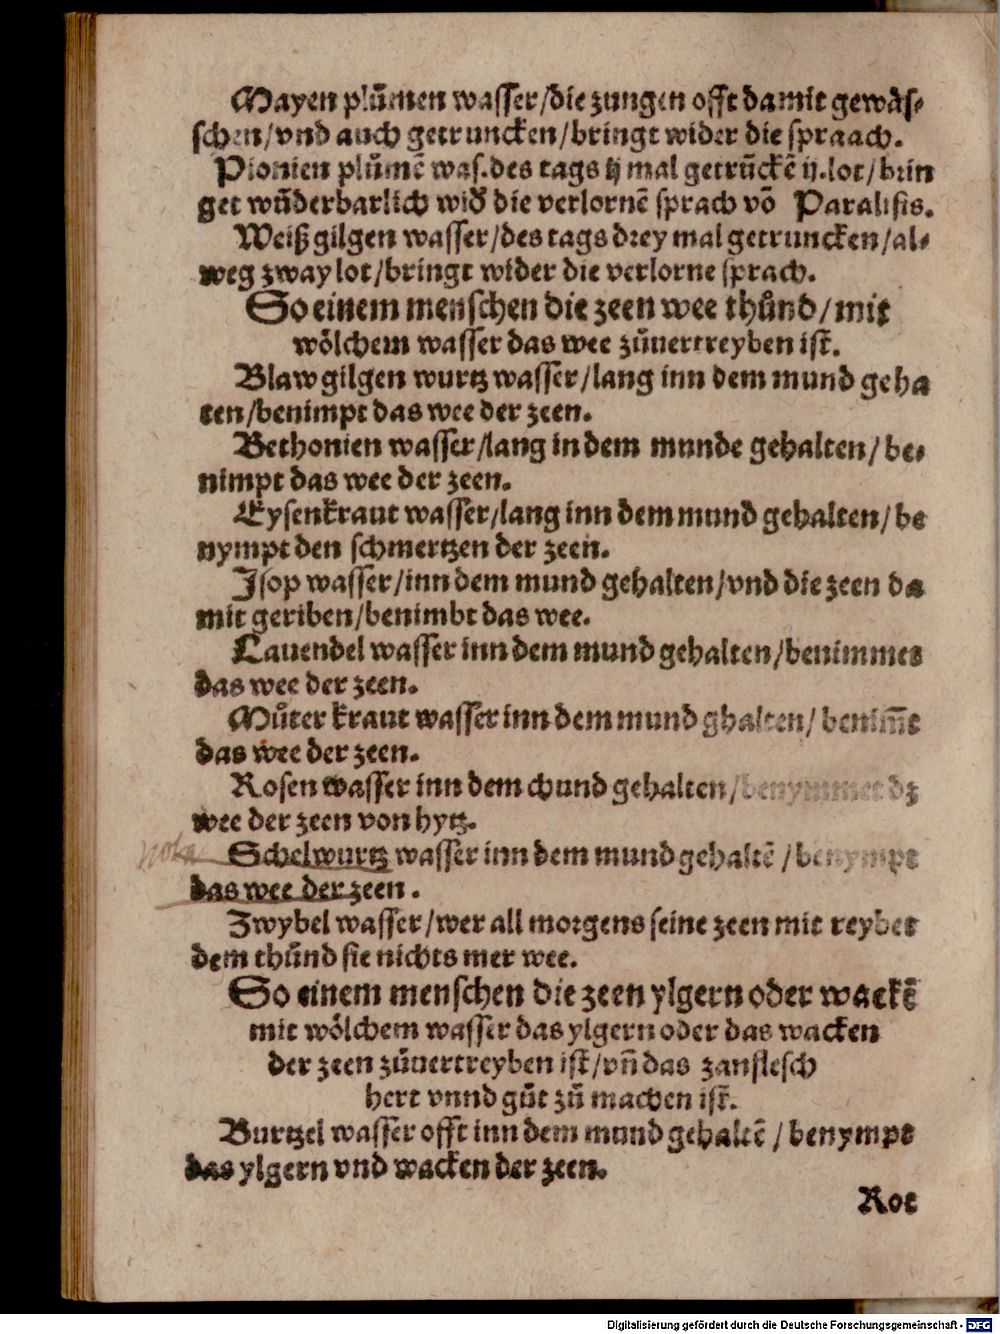 Mayen plůmen wasser/die zungen offt damit gewäs⸗
schen/vnd auch getruncken/bringt wider die spraach.
Pionien plůmē was.des tags ij mal getrūckē ij.lot/brin
get wūderbarlich wid̄ die verlornē sprach vō Paralisis.
Weiß gilgen wasser/des tags drey mal getruncken/al⸗
weg zway lot/bringt wider die verlorne sprach.
So einem menschen die zeen wee thůnd/mit
wölchem wasser das wee zůuertreyben ist.
Blaw gilgen wurtz wasser/lang inn dem mund geha
ten/benimpt das wee der zeen.
Bethonien wasser/lang in dem munde gehalten/be⸗
nimpt das wee der zeen.
Eysenkraut wasser/lang inn dem mund gehalten/be
nympt den schmertzen der zeen.
Isop wasser/inn dem mund gehalten/vnd die zeen da
mit geriben/benimbt das wee.
Lauendel wasser inn dem mund gehalten/benimmet
das wee der zeen.
Můter kraut wasser inn dem mund ghalten/benim̄t
das wee der zeen.
Rosen wasser inn dem chund gehalten/benymmet dz
wee der zeen von hytz.
nota Schelwurtz wasser inn dem mund gehaltē/benympt
das wee der zeen.
Zwybel wasser/wer all morgens seine zeen mit reybet
dem thůnd sie nichts mer wee.
So einem menschen die zeen ylgern oder wackē
mit wölchem wasser das ylgern oder das wacken
der zeen zůuertreyben ist/vn̄ das zanflesch
hert vnnd gůt zů machen ist.
Burtzel wasser offt inn dem mund gehaltē/benympt
das ylgern vnd wacken der zeen.
Rot
Digitalisierung gefördert durch die Deutsche Forschungsgemeinschaft - DFG